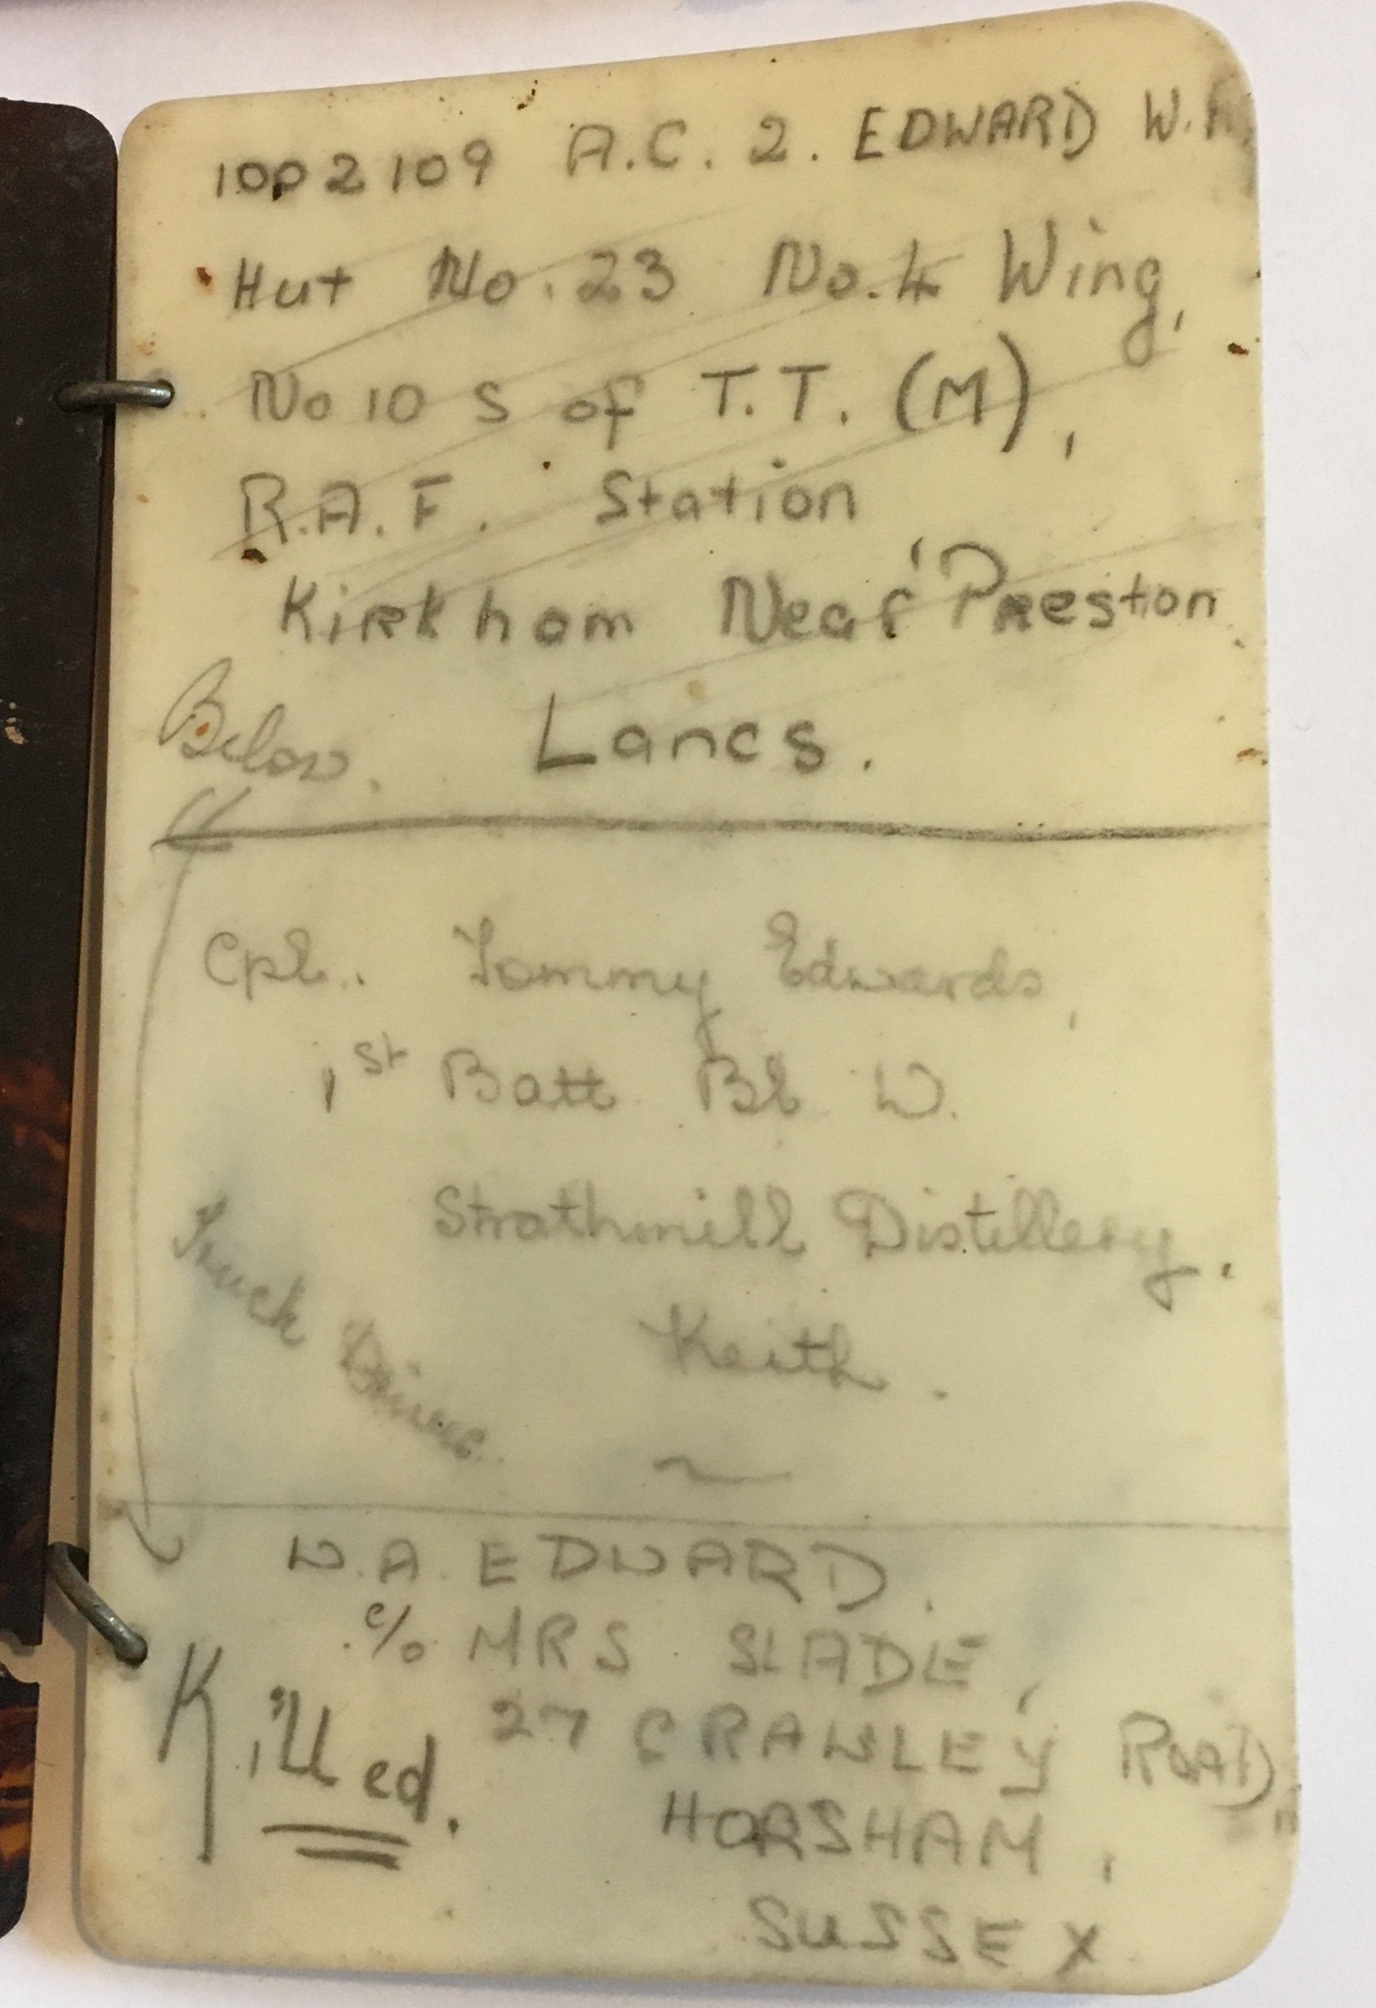 1002109 A.C. 2. EDWARD W.A.
Hut No. 23 No. 4 Wing,
No 10 S of T.T. (M),
R.A.F. Station
Kirkham Near Preston
Below. Lancs.
Cpl. Tommy Edwards,
1st Batt Bl W.
Strathmill Distillery,
Keith.
Truck Driver.
W.A. EDWARD.
c/o MRS SLADE,
27 CRAWLEY ROAD,
Killed.
HORSHAM,
SUSSEX